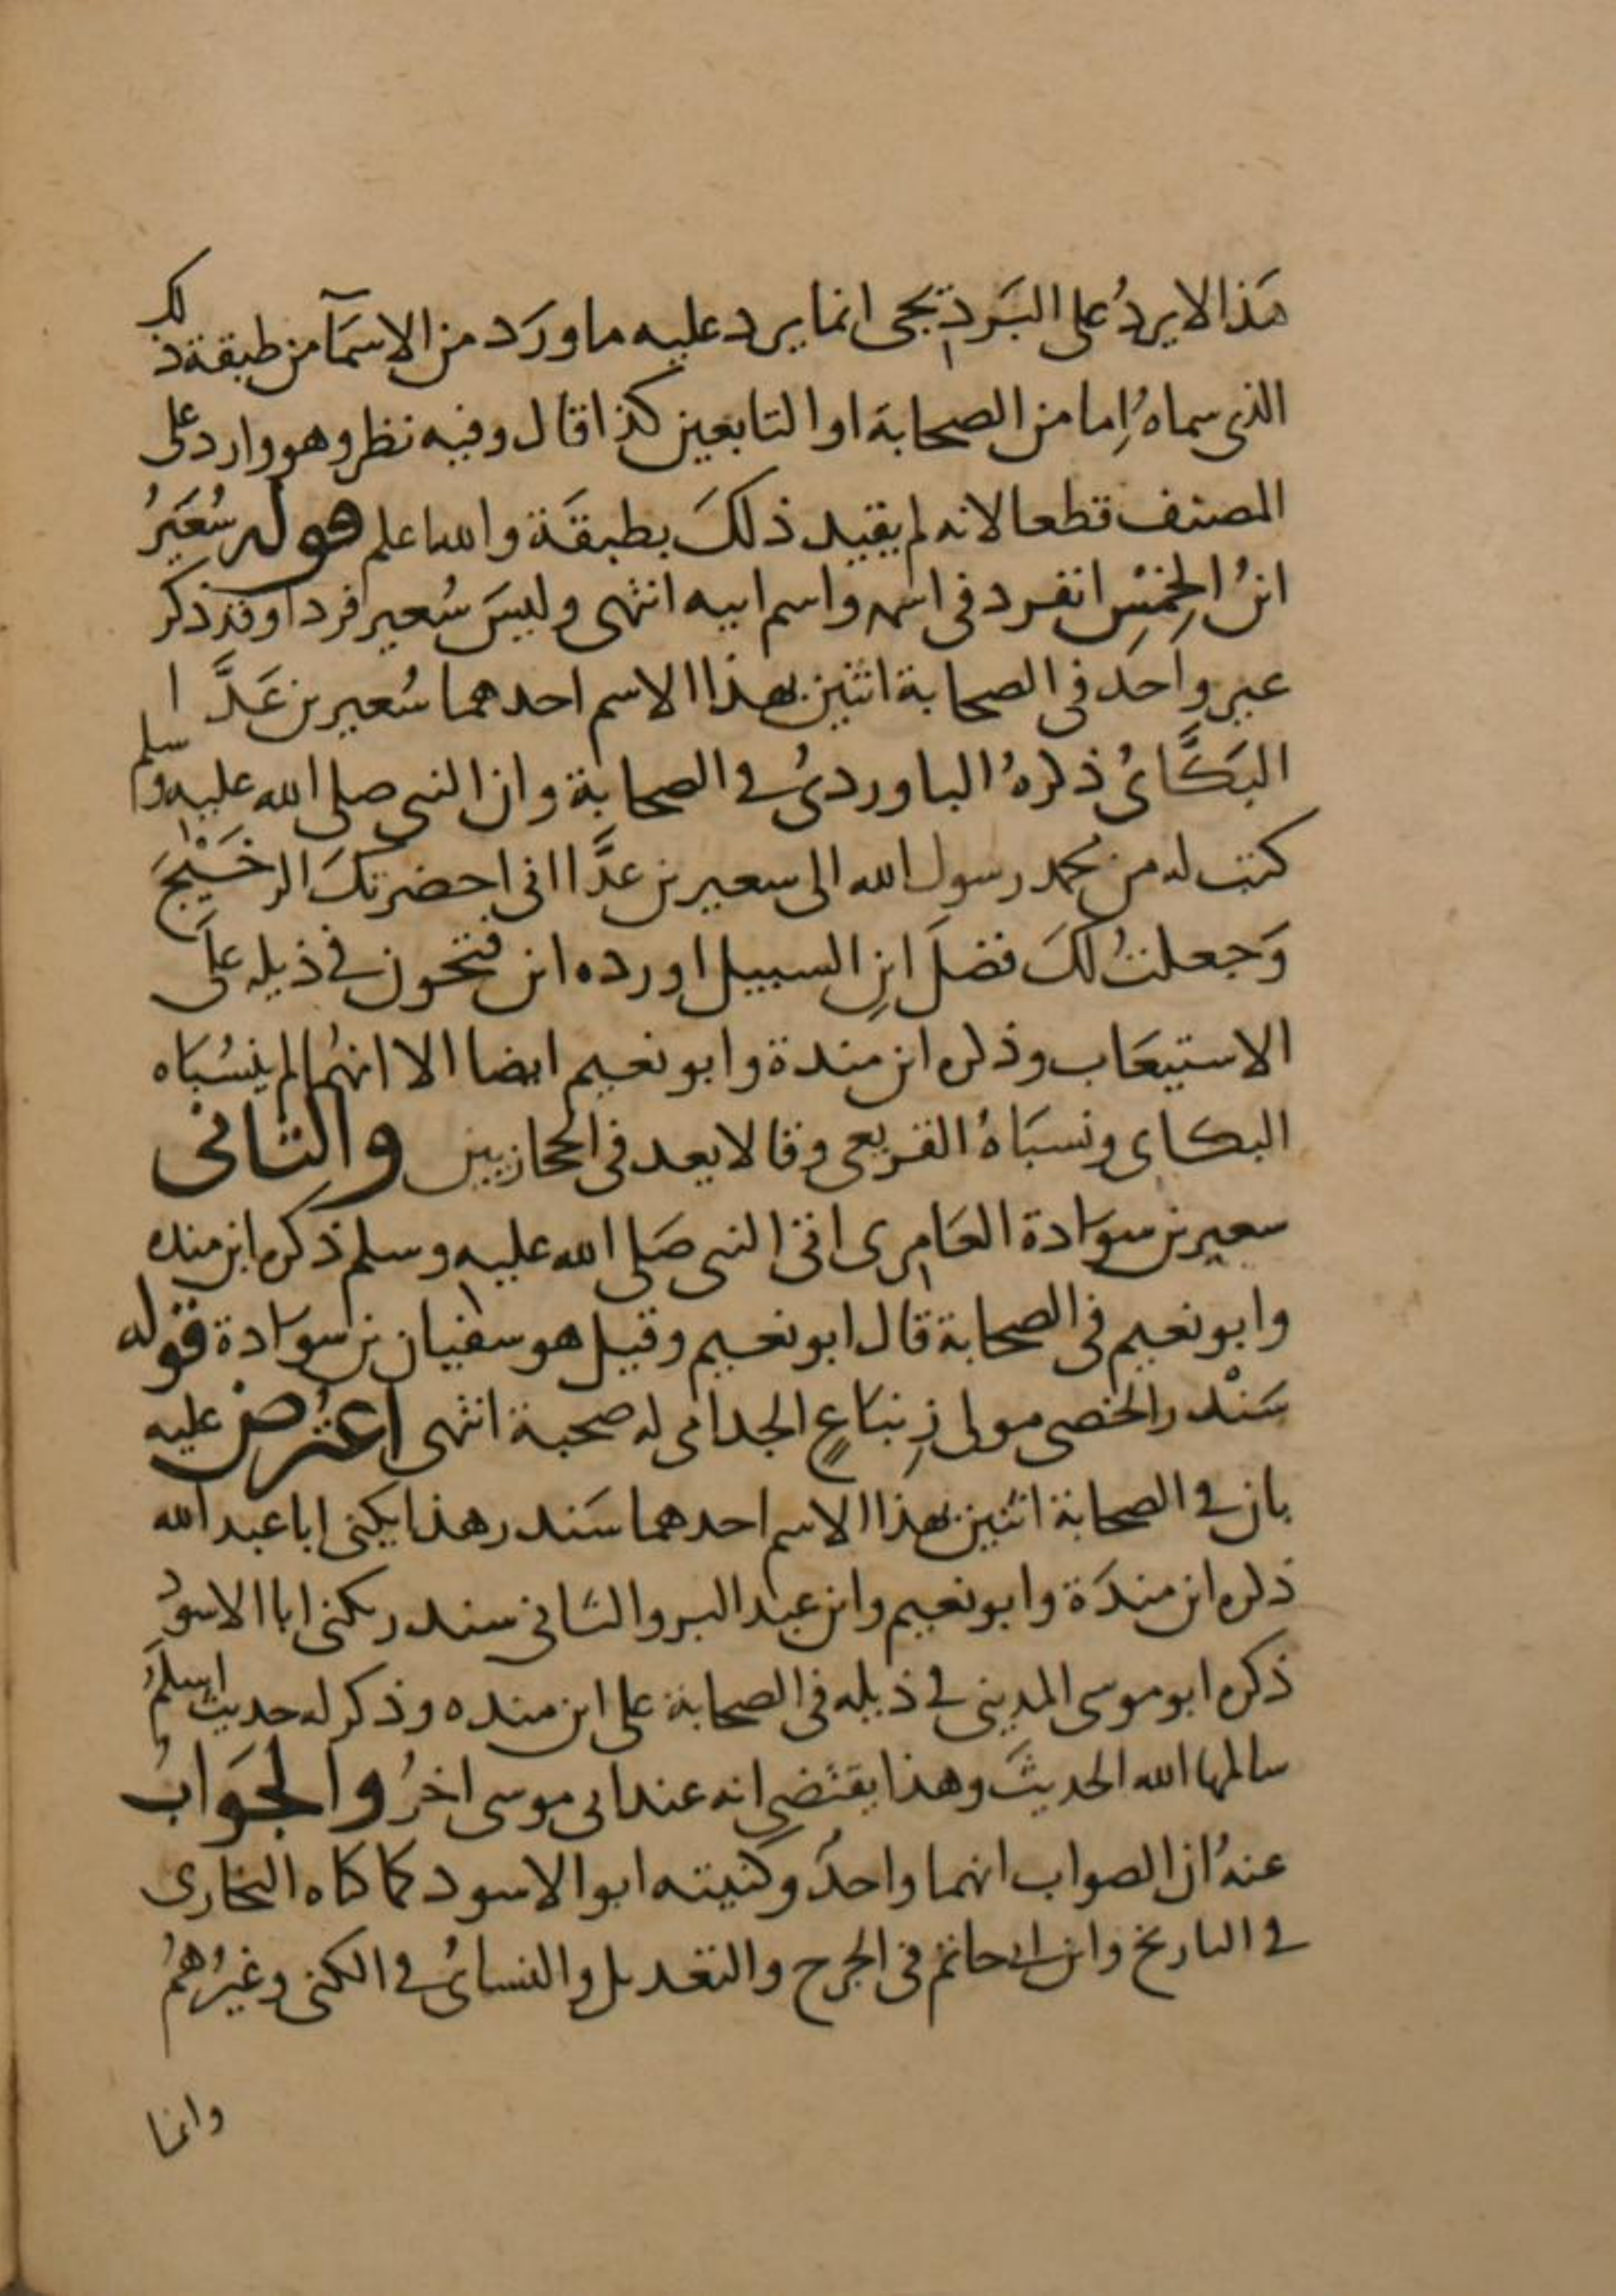 هَذا لا يردُ على البَرديجى انما يرد عليه ما ورَد من الاسمآ من طبقة ذلك
الذى سماهُ إما من الصحابة او التابعين كذا قال وفيه نظر وهو وارد على
المصنف قطعا لانه لم يقيد ذلكَ بطبقَة والله اعلم قوله سُعَيرُ
ابنُ الخِمْسِ انفرد فى اسمه واسم ابيه انتهى وليسَ سُعير فردا وقد ذكر
غير واحد فى الصحابة اثنين بهذا الاسم احدهما سُعير بن عَدَّا
البَكَّائُ ذكرهُ الباوردىُ فى الصحابة وان النبى صلى الله عليه وسلم
كتب له من محمد رسول الله الى سعير بن عدَّا انى احضرتكَ الرخَيْجَ
وَجعلتُ لكَ فضلَ ابنِ السبيل اورده ابن فتحون فى ذيله على
الاستيعَاب وذكره ابن مندة وابو نعيم ايضا الا انهُما لم ينسُبَاه
البكاى ونسبَاهُ القريعى وقالا يعد فى الحجازيين والثانى
سعير بن سوَادة العَامرى اتى النبى صَلى الله عليه وسلم ذكره ابن منده
وابو نعيم فى الصحابة قال ابو نعيم وقيل هو سفيان بن سوَادة قوله
سَنْدر الخصى مولى زِنبَاعٍ الجدامى له صحبة انتهى اعتُرض عليه
بان فى الصحابة اثنين بهذا الاسم احدهما سَندر هذا يكنى ابا عبد الله
ذكره ابن مندَة وابو نعيم وابن عبد البر والثانى سندر يكنى ابا الاسود
ذكره ابو موسى المدينى فى ذيله فى الصحابة على ابن منده وذكر له حديث اسلمُ
سالمها الله الحديثَ وهذا يقتضى انه عند ابى موسى اخرُ والجوَابُ
عنهُ ان الصواب انهما واحدٌ وكنيته ابو الاسود كما كناه البخارى
فى التاريخ وابن ابى حاتم فى الجرح والتعديل والنسائىُ فى الكنى وغيرُهمُ
وانما